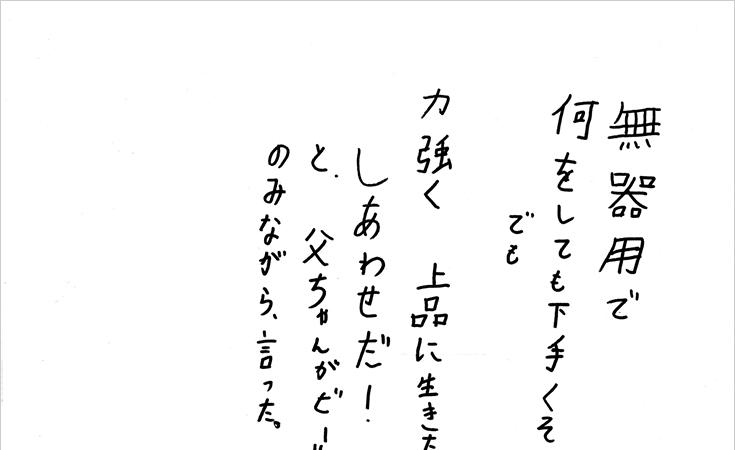 無器用で
何をしても下手くそ
でも
力強く 上品に生きた
しあわせだ！
と、父ちゃんがビー
のみながら、言った。